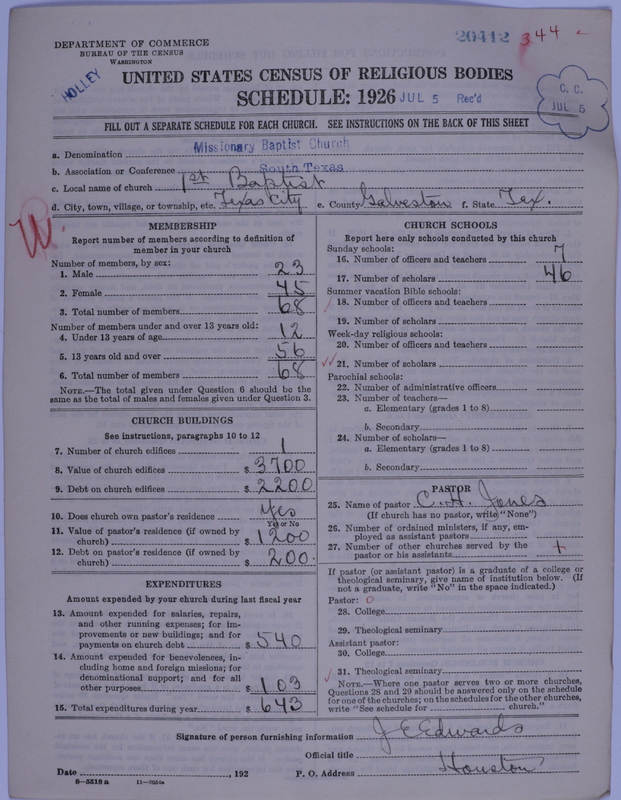 20412 344
DEPARTMENT OF COMMERCE
BUREAU OF THE CENSUS
WASHINGTON
HOLLEY
UNITED STATES CENSUS OF RELIGIOUS BODIES
SCHEDULE: 1926 JUL 5 Rec'd
C. C.
JUL 5
FILL OUT A SEPARATE SCHEDULE FOR EACH CHURCH. SEE INSTRUCTIONS ON THE BACK OF THIS SHEET
a. Denomination Missionary Baptist Church
b. Association or Conference South Texas
c. Local name of church 1st Baptist
d. City, town, village, or township, etc. Texas City e. County Galveston f. State Tex.
W.
MEMBERSHIP
Report number of members according to definition of
member in your church
Number of members, by sex:
1. Male 23
2. Female 45
3. Total number of members 68
Number of members under and over 13 years old:
4. Under 13 years of age 12
5. 13 years old and over 56
6. Total number of members 68
NOTE.—The total given under Question 6 should be the
same as the total of males and females given under Question 3.
CHURCH BUILDINGS
See instructions, paragraphs 10 to 12
7. Number of church edifices 1
8. Value of church edifices $ 3700
9. Debt on church edifices $ 2200
10. Does church own pastor's residence Yes
Yes or No
11. Value of pastor's residence (if owned by
church) $ 1200
12. Debt on pastor's residence (if owned by
church) $ 200.
EXPENDITURES
Amount expended by your church during last fiscal year
13. Amount expended for salaries, repairs,
and other running expenses; for im-
provements or new buildings; and for
payments on church debt $ 540
14. Amount expended for benevolences, in-
cluding home and foreign missions; for
denominational support; and for all
other purposes $ 103
15. Total expenditures during year $ 643
CHURCH SCHOOLS
Report here only schools conducted by this church
Sunday schools:
16. Number of officers and teachers 7
17. Number of scholars 46
Summer vacation Bible schools:
18. Number of officers and teachers
19. Number of scholars
Week-day religious schools:
20. Number of officers and teachers
21. Number of scholars
Parochial schools:
22. Number of administrative officers
23. Number of teachers—
a. Elementary (grades 1 to 8)
b. Secondary
24. Number of scholars—
a. Elementary (grades 1 to 8)
b. Secondary
PASTOR
25. Name of pastor C. H. Jones
(If church has no pastor, write "None")
26. Number of ordained ministers, if any, em-
ployed as assistant pastors
27. Number of other churches served by the
pastor or his assistants +
If pastor (or assistant pastor) is a graduate of a college or
theological seminary, give name of institution below. (If
not a graduate, write "No" in the space indicated.)
Pastor: 0
28. College
29. Theological seminary
Assistant pastor:
30. College
31. Theological seminary
NOTE.—Where one pastor serves two or more churches,
Questions 28 and 29 should be answered only on the schedule
for one of the churches; on the schedules for the other churches,
write "See schedule for church."
Signature of person furnishing information J E Edwards
Official title
Date , 192 P. O. Address Houston
8—5518 a